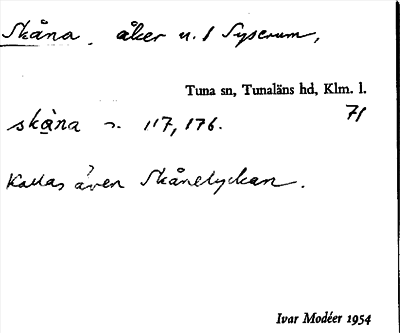 Skåna, åker u. / Syserum,
Tuna sn, Tunaläns hd, Klm. l.
71
skàna 117, 176.
Kallas även Skånelyckan.
Ivar Modéer 1954